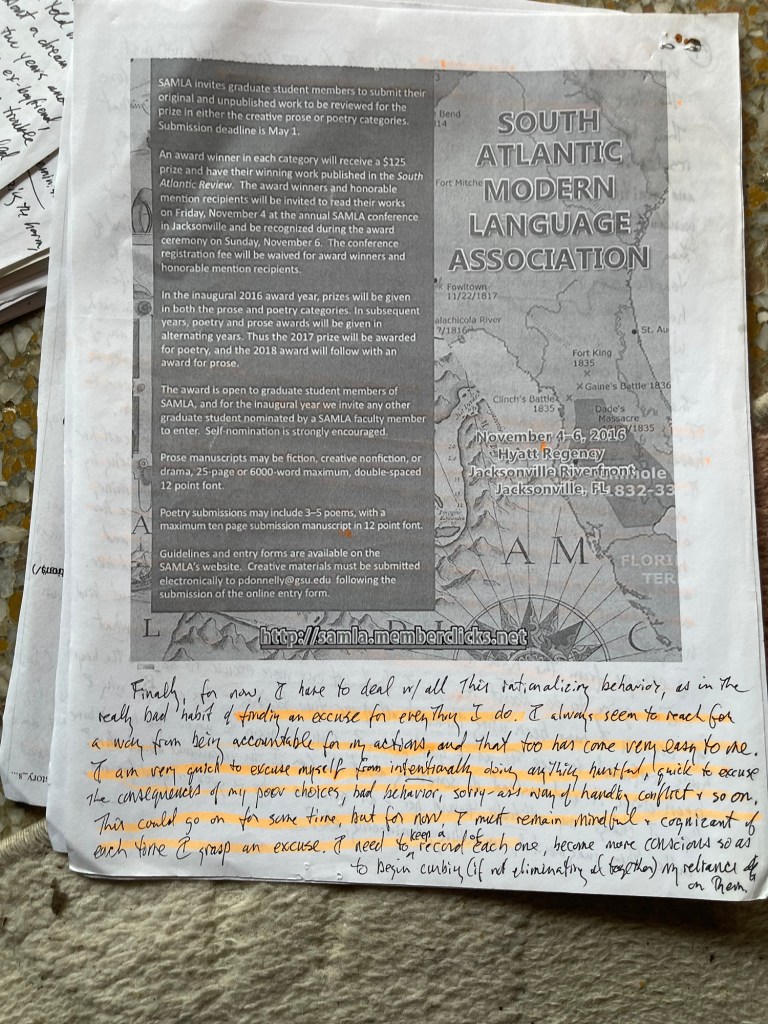 SAMLA invites graduate student members to submit their
original and unpublished work to be reviewed for the
prize in either the creative prose or poetry categories.
Submission deadline is May 1.
An award winner in each category will receive a $125
prize and have their winning work published in the South
Atlantic Review. The award winners and honorable
mention recipients will be invited to read their works
on Friday, November 4 at the annual SAMLA conference
in Jacksonville and be recognized during the award
ceremony on Sunday, November 6. The conference
registration fee will be waived for award winners and
honorable mention recipients.
In the inaugural 2016 award year, prizes will be given
in both the prose and poetry categories. In subsequent
years, poetry and prose awards will be given in
alternating years. Thus the 2017 prize will be awarded
for poetry, and the 2018 award will follow with an
award for prose.
The award is open to graduate student members of
SAMLA, and for the inaugural year we invite any other
graduate student nominated by a SAMLA faculty member
to enter. Self-nomination is strongly encouraged.
Prose manuscripts may be fiction, creative nonfiction, or
drama, 25-page or 6000-word maximum, double-spaced
12 point font.
Poetry submissions may include 3–5 poems, with a
maximum ten page submission manuscript in 12 point font.
Guidelines and entry forms are available on the
SAMLA's website. Creative materials must be submitted
electronically to pdonnelly@gsu.edu following the
submission of the online entry form.
SOUTH
ATLANTIC
MODERN
LANGUAGE
ASSOCIATION
Bend
14
Fort Mitche
Fowltown
11/22/1817
alachicola River
7/1816
St. Au
Fort King
1835
Gaine's Battle 1836
Clinch's Battle
1835
Dade's
Massacre
/1835
November 4–6, 2016
Hyatt Regency
Jacksonville Riverfront
Jacksonville, FL
inole
1832-33
A M
FLORI
TER
A
L
C
http://samla.memberclicks.net
Finally, for now, I have to deal w/ all this rationalizing behavior, as in the
really bad habit of finding an excuse for everything I do. I always seem to reach for
a way from being accountable for my actions, and that too has come very easy to me.
I am very quick to excuse myself from intentionally doing anything hurtful, quick to excuse
the consequences of my poor choices, bad behavior, sorry-ass way of handling conflict & so on.
This could go on for some time, but for now, I must remain mindful & cognizant of
each time I grasp an excuse. I need to keep a record of each one, become more conscious so as
to begin curbing (if not eliminating altogether) my reliance
on them.
told
about a dream
the years and
ex-boyfriend,
trouble